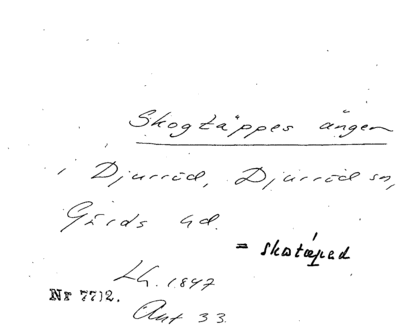 Skogtäppes ängen
i Djurröd, Djurröd sn,
Gärds hd.
= skotáped
Lh. 1847
Nr 7712.
Akt 33